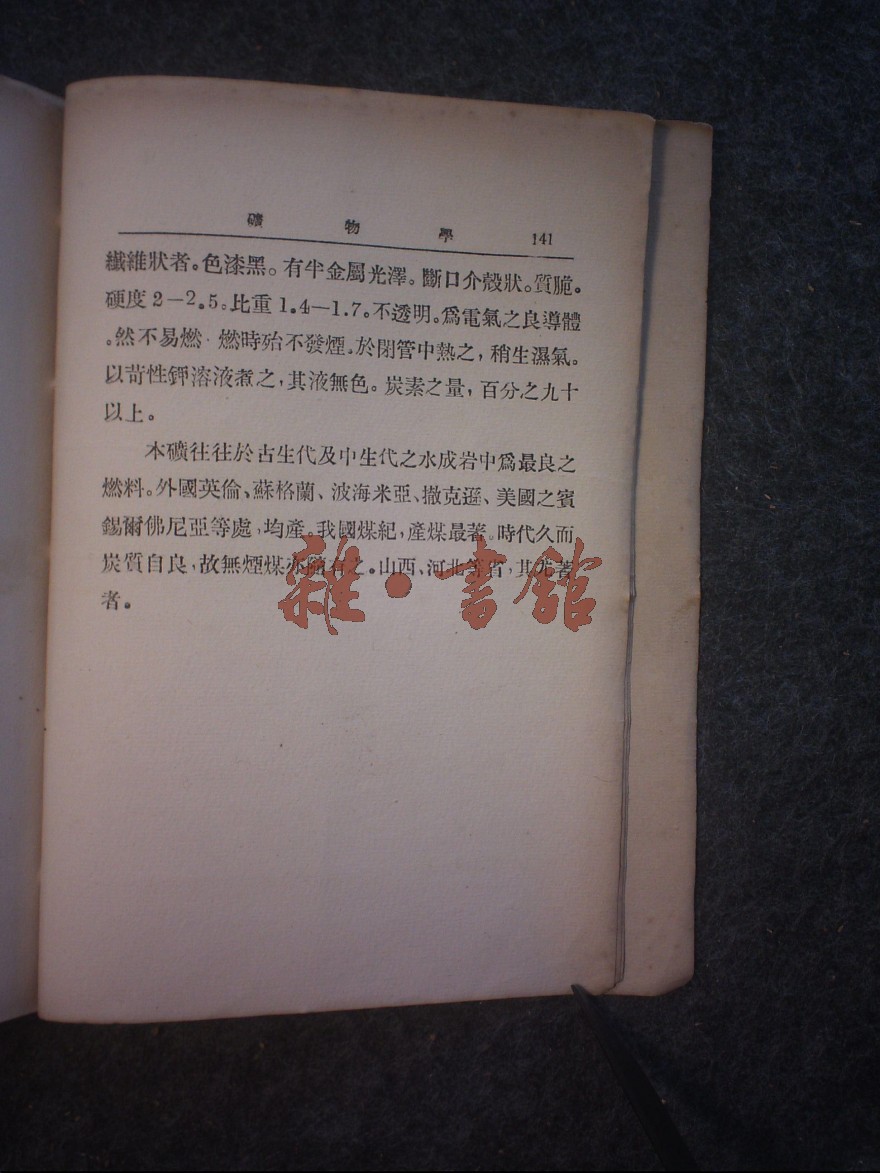 礦物學 141
纖維狀者。色漆黑。有半金屬光澤。斷口介殼狀。質脆。
硬度2—2.5。比重1.4—1.7。不透明。爲電氣之良導體
。然不易燃．燃時殆不發煙。於閉管中熱之，稍生濕氣。
以苛性鉀溶液煮之，其液無色。炭素之量，百分之九十
以上。
本礦往往於古生代及中生代之水成岩中爲最良之
燃料。外國英倫、蘇格蘭、波海米亞、撒克遜、美國之賓
錫爾佛尼亞等處，均產。我國煤紀，產煤最著。時代久而
炭質自良，故無煙煤亦隨有之。山西、河北等省，其尤著
者。
雜·書館